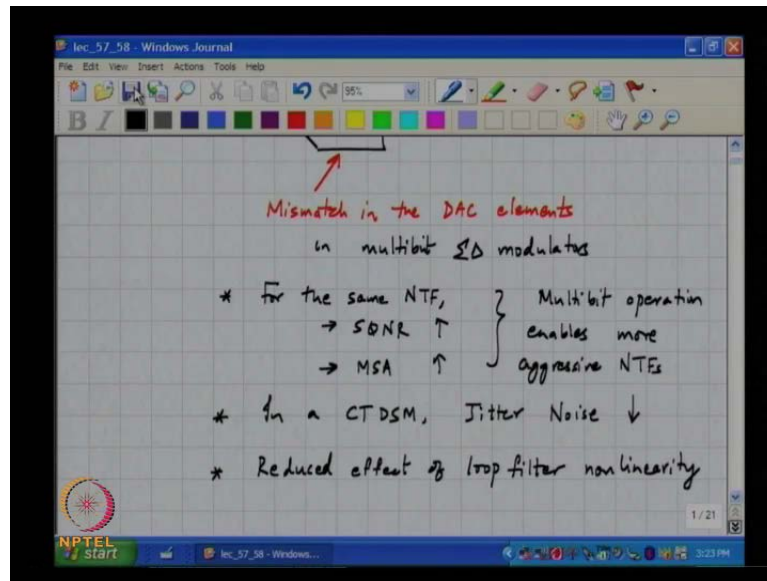 lec_57_58 - Windows Journal
File Edit View Insert Actions Tools Help
95%
B I
Mismatch in the DAC elements
in multibit ΣΔ modulators
* For the same NTF,
→ SQNR ↑
→ MSA ↑
} Multibit operation
enables more
aggressive NTFs
* In a CTDSM, Jitter Noise ↓
* Reduced effect of loop filter nonlinearity
1 / 21
NPTEL
start
lec_57_58 - Windows...
3:23 PM